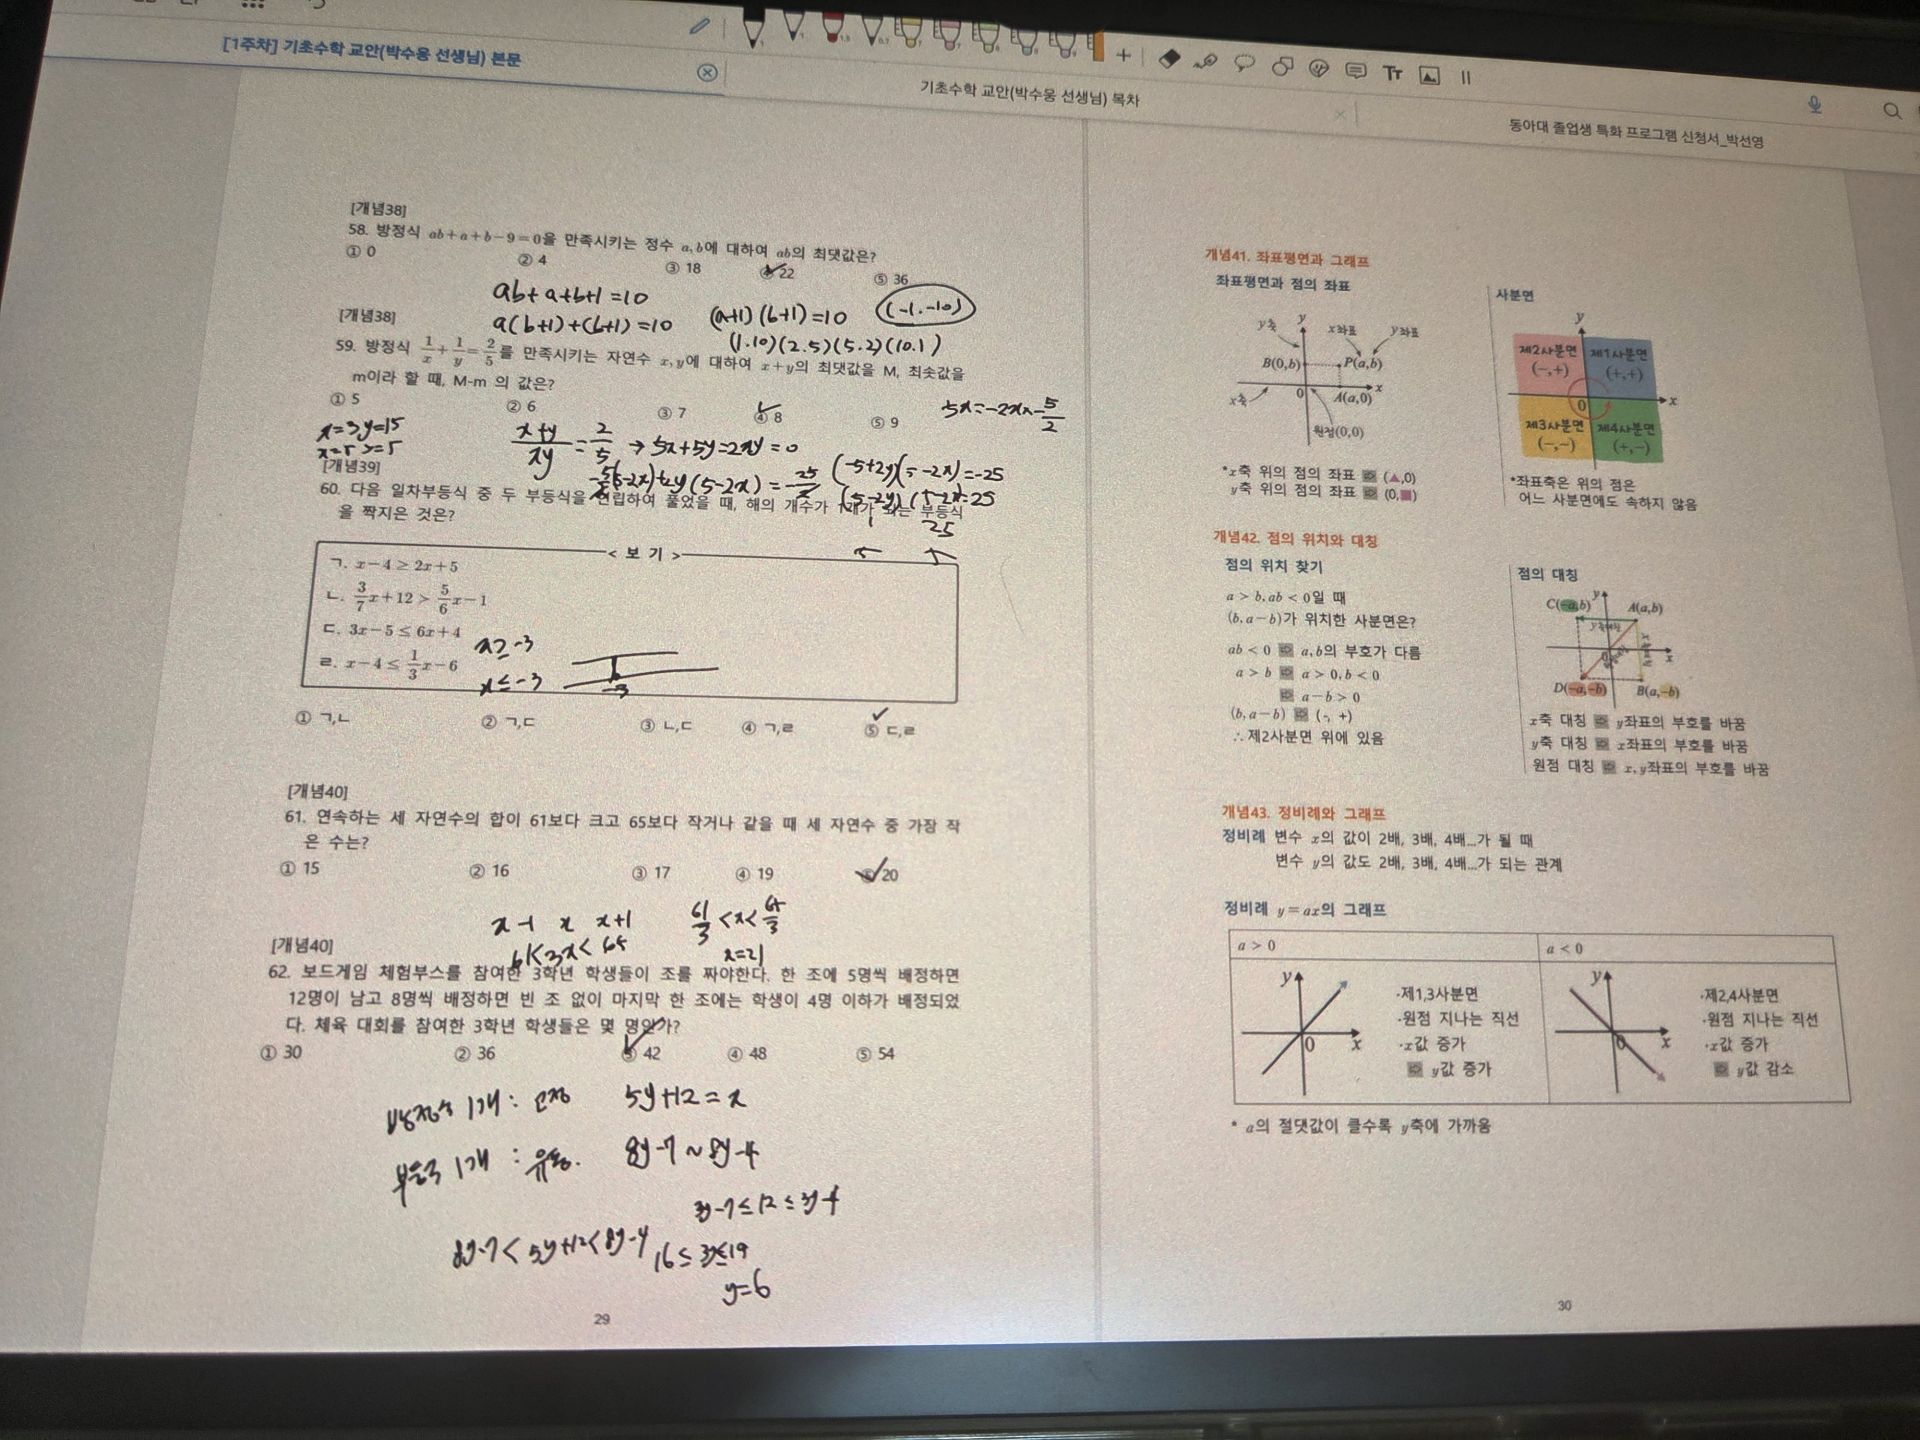 [1주차] 기초수학 교안(박수웅 선생님) 본문
기초수학 교안(박수웅 선생님) 목차
동아대 졸업생 특화 프로그램 신청서_박선영
[개념38]
58. 방정식 ab+a+b-9=0을 만족시키는 정수 a,b에 대하여 ab의 최댓값은?
① 0 ② 4 ③ 18 ④ 22 ⑤ 36
ab+a+b+1=10
a(b+1)+(b+1)=10 (a+1)(b+1)=10 (-1.-10)
(1.10)(2.5)(5.2)(10.1)
[개념38]
59. 방정식 1/x+1/y=2/5를 만족시키는 자연수 x,y에 대하여 x+y의 최댓값을 M, 최솟값을
m이라 할 때, M-m 의 값은?
① 5 ② 6 ③ 7 ④ 8 ⑤ 9
x=3y=15
x+y/xy=2/5 → 5x+5y=2xy=0
(5-2y)(5-2x)=25
25
[개념39]
60. 다음 일차부등식 중 두 부등식을 연립하여 풀었을 때, 해의 개수가 1개가 되는 부등식
을 짝지은 것은?
< 보 기 >
ㄱ. x-4≥2x+5
ㄴ. 3/7x+12>5/6x-1
ㄷ. 3x-5≤6x+4
x≥-3
ㄹ. x-4≤1/3x-6
x≤-3
-3
① ㄱ,ㄴ ② ㄱ,ㄷ ③ ㄴ,ㄷ ④ ㄱ,ㄹ ⑤ ㄷ,ㄹ
[개념40]
61. 연속하는 세 자연수의 합이 61보다 크고 65보다 작거나 같을 때 세 자연수 중 가장 작
은 수는?
① 15 ② 16 ③ 17 ④ 19 ⑤ 20
x-1 x x+1 61/3<x<65/3
61<3x<65 x=21
[개념40]
62. 보드게임 체험부스를 참여한 3학년 학생들이 조를 짜야한다. 한 조에 5명씩 배정하면
12명이 남고 8명씩 배정하면 빈 조 없이 마지막 한 조에는 학생이 4명 이하가 배정되었
다. 체육 대회를 참여한 3학년 학생들은 몇 명인가?
① 30 ② 36 ③ 42 ④ 48 ⑤ 54
방정식 1개 : 고정 5y+12=x
1개 : 유동. 8y-7~8y-4
3y-7≤12≤3y-4
8y-7<5y+12<8y-4 16≤3y≤19
y=6
29
개념41. 좌표평면과 그래프
좌표평면과 점의 좌표
y축 y x좌표 y좌표
B(0,b) P(a,b)
x축 0 A(a,0) x
원점(0,0)
*x축 위의 점의 좌표 ⇨ (▲,0)
y축 위의 점의 좌표 ⇨ (0,■)
사분면
y
제2사분면 제1사분면
(-,+) (+,+)
0 x
제3사분면 제4사분면
(-,-) (+,-)
*좌표축은 위의 점은
어느 사분면에도 속하지 않음
개념42. 점의 위치와 대칭
점의 위치 찾기
a>b,ab<0일 때
(b,a-b)가 위치한 사분면은?
ab<0 ⇨ a,b의 부호가 다름
a>b ⇨ a>0,b<0
⇨ a-b>0
(b,a-b) ⇨ (-, +)
∴제2사분면 위에 있음
점의 대칭
C(-a,b) y A(a,b)
0 x
D(-a,-b) B(a,-b)
x축 대칭 ⇨ y좌표의 부호를 바꿈
y축 대칭 ⇨ x좌표의 부호를 바꿈
원점 대칭 ⇨ x,y좌표의 부호를 바꿈
개념43. 정비례와 그래프
정비례 변수 x의 값이 2배, 3배, 4배...가 될 때
변수 y의 값도 2배, 3배, 4배...가 되는 관계
정비례 y=ax의 그래프
a>0
y
0 x
·제1,3사분면
·원점 지나는 직선
·x값 증가
⇨ y값 증가
a<0
y
0 x
·제2,4사분면
·원점 지나는 직선
·x값 증가
⇨ y값 감소
* a의 절댓값이 클수록 y축에 가까움
30